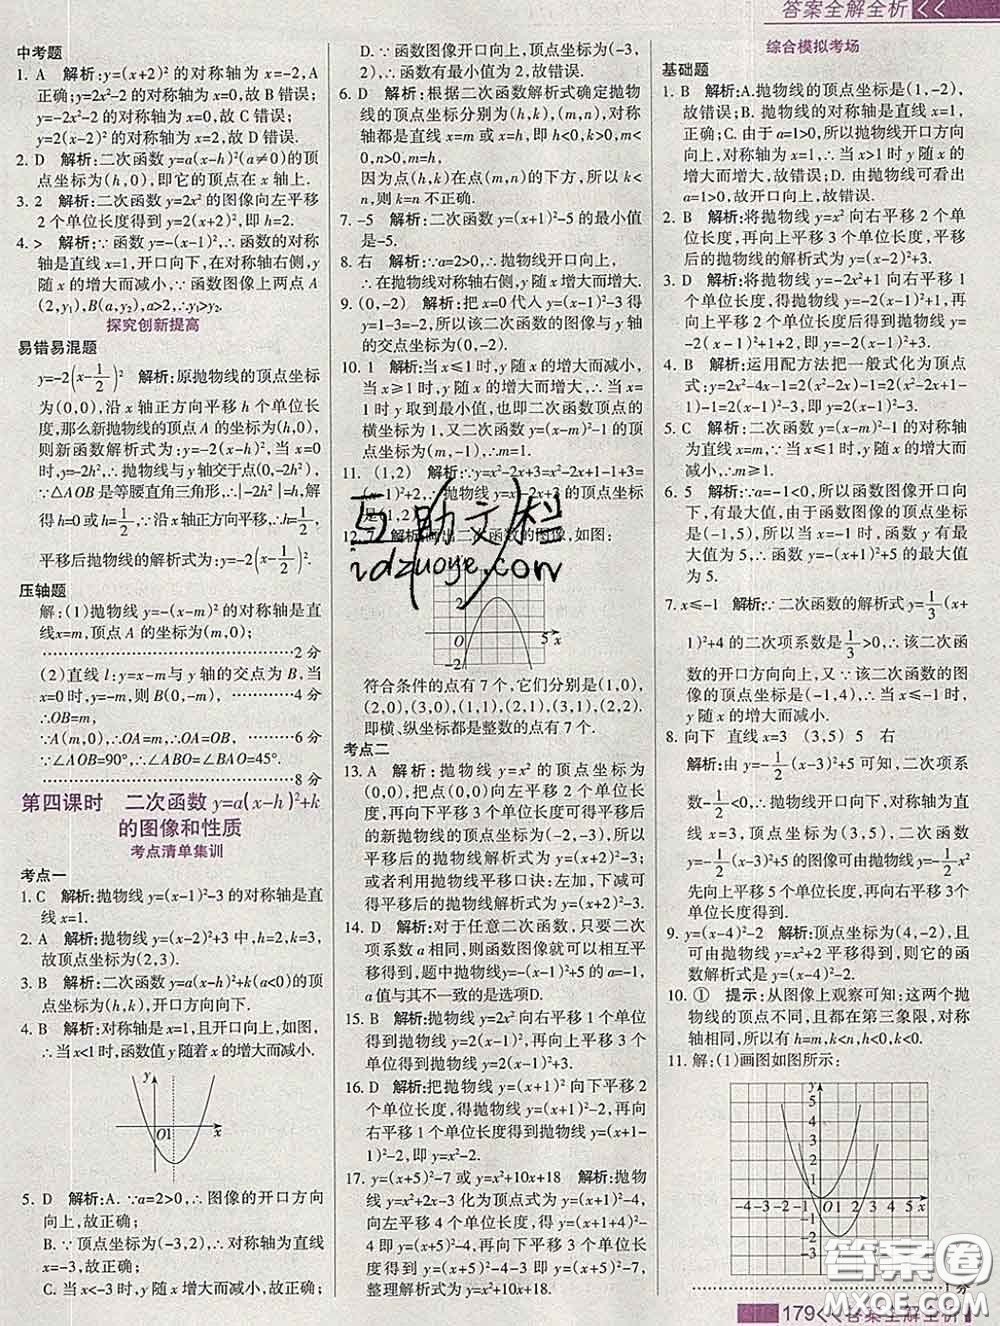 答案全解全析
中考题
1. A 解析:y=(x+2)² 的对称轴为 x=-2,A
正确;y=2x²-2 的对称轴为 x=0,故 B 错误;
y=-2x²-2 的对称轴为 x=0,故 C 错误;
y=2(x-2)² 的对称轴为 x=2,故 D 错误.
2. D 解析:二次函数 y=a(x-h)²(a≠0)的顶
点坐标为(h,0),即它的顶点在 x 轴上.
3. 2 解析:二次函数 y=2x² 的图像向左平移
2 个单位长度得到 y=2(x+2)²,即 h=2.
4. > 解析:∵函数 y=-(x-1)²,∴函数的对称
轴是直线 x=1,开口向下,在对称轴右侧,y
随 x 的增大而减小.∵函数图像上两点 A
(2,y₁),B(a,y₂),a>2,∴y₁>y₂.
探究创新提高
易错易混题
y=-2(x-1/2)² 解析:原抛物线的顶点坐标
为(0,0),沿 x 轴正方向平移 h 个单位长
度,那么新抛物线的顶点 A 的坐标为(h,0),
则新函数解析式为:y=-2(x-h)²,当 x=0
时,y=-2h²,∴抛物线与 y 轴交于点(0,-2h²),
∵△AOB 是等腰直角三角形,∴|-2h²|=h,解
得 h=0 或 h=1/2,∵沿 x 轴正方向平移,∴h=1/2,
平移后抛物线的解析式为:y=-2(x-1/2)².
压轴题
解:(1)抛物线 y=-(x-m)² 的对称轴是直
线x=m,顶点 A 的坐标为(m,0);
2 分
(2)直线 l:y=x-m与 y 轴的交点为 B,当
x=0时,y=-m,则 B(0,-m), 4 分
∴OB=m,
∵A(m,0),∴OA=m,∴OA=OB, 6 分
∵∠AOB=90°,∴∠ABO=45°.
8 分
第四课时 二次函数 y=a(x-h)²+k
的图像和性质
考点清单集训
考点一
1. C 解析:抛物线 y=(x-1)²-3 的对称轴是直
线 x=1.
2. A 解析:抛物线 y=(x-2)²+3 中,h=2,k=3,
故顶点坐标为(2,3).
3. B 解析:二次函数 y=a(x-h)²+k(a<0)的顶
点坐标为(h,k),开口方向向下.
4. B 解析:∵对称轴是x=1,且开口向上,如图,
∴当 x<1 时,函数值 y 随着 x 的增大而减小.
y
O 1 x
5. D 解析:A.∵a=2>0,∴图像的开口方向
向上,故正确;
B.∵顶点坐标为(-3,2),∴对称轴为直线
x=-3,故正确;
C. 当 x<-3 时,y 随 x 增大而减小,故正确;
D.∵函数图像开口向上,顶点坐标为(-3,
2),∴函数有最小值为 2,故错误.
6. D 解析:根据二次函数解析式确定抛物
线的顶点坐标分别为(h,k),(m,n),对称
轴都是直线 x=m 或 x=h,即 h<0,k>0,m<
0,n>0,m=h,
因为点(h,k)在点(m,n)的下方,所以 k<
n,则 k=n 不正确.
7. -5 解析:二次函数 y=(x+1)²-5 的最小值
是-5.
8. 右 解析:∵a=2>0,∴抛物线开口向上,
∴在抛物线对称轴右侧,y随x的增大而增大.
9. (0,-2) 解析:把 x=0 代入 y=(x-1)²-3得
y=1-3=-2,所以该二次函数的图像与 y 轴
的交点坐标为(0,-2).
10. 1 解析:当 x≤1 时,y 随 x 的增大而减小,
当 x≥1 时,y 随 x 的增大而增大,∴当 x=
1 时 y 取到最小值,也即二次函数顶点的
横坐标为 1,又二次函数 y=(x-m)²-1 的顶
点坐标为(m,-1),∴m=1.
11. (1,2) 解析:∵y=x²-2x+3=x²-2x+1-1+3=
(x-1)²+2,∴抛物线 y=x²-2x+3 的顶点坐标
是(1,2).
12. 7 解析:画出二次函数的图像,如图:
互助文档
idzuoye.com
2
O 5 x
-2
符合条件的点有 7 个,它们分别是(1,0),
(2,0),(3,0),(1,1),(2,1),(3,1),(2,2).
即横、纵坐标都是整数的点有 7 个.
考点二
13. A 解析:抛物线 y=x² 的顶点坐标为(0,
0),把点(0,0)向左平移 2 个单位长度,
再向下平移 3 个单位长度可得平移后
的新抛物线的顶点坐标为(-2,-3),所以
平移后的抛物线解析式为 y=(x+2)²-3;
或者利用抛物线平移口诀:左加,下减可
得平移后的抛物线解析式为y=(x+2)²-3.
14. D 解析:对于任意二次函数,只要二次
项系数 a 相同,则函数图像就可以相互平
移得到,题中抛物线 y=-(x-1)²+5 的 a=-1,
a 值与其不一致的是选项D.
15. B 解析:抛物线 y=2x² 向右平移 1 个单位
长度得到 y=2(x-1)²,再向上平移 5 个单
位长度得到 y=2(x-1)²+5.
16. D 解析:把抛物线 y=(x+1)² 向下平移2
个单位长度,得到抛物线 y=(x+1)²-2,再向
右平移 1 个单位长度得到抛物线 y=(x+1-
1)²-2,即 y=x²-2.
17. y=(x+5)²-7 或 y=x²+10x+18 解析:抛物
线 y=x²+2x-3 化为顶点式为 y=(x+1)²-4,
向左平移 4 个单位长度,得 y=(x+1+4)²-
4=(x+5)²-4,再向下平移3 个单位长度,
得 y=(x+5)²-4-3=(x+5)²-7,即 y=(x+5)²-7,
整理解析式为 y=x²+10x+18.
综合模拟考场
基础题
1. B 解析:A.抛物线的顶点坐标是(1,-2),
故错误;B. 抛物线的对称轴是直线 x=1,
正确;C. 由于 a=1>0,所以抛物线开口方向
向上,对称轴为 x=1,∴当 x>1 时 y 随 x 的
增大而增大,故错误;D. 由抛物线可看出
a=1>0,故开口向上,故错误.
2. B 解析:将抛物线 y=x² 向右平移 2 个单
位长度,再向上平移 3 个单位长度后,平移
后的抛物线的解析式为 y=(x-2)²+3.
3. D 解析:将抛物线 y=-2x²+1 向右平移1
个单位长度后所得抛物线为y=-2(x-1)²+1,再
向上平移 1 个单位长度后得到抛物线为y=
-2(x-1)²+1+1,即 y=-2(x-1)²+2.
4. B 解析:运用配方法把一般式化为顶点
式:y=2x²-4x-1=2(x²-2x)-1=2(x²-2x+1-
1)-1=2(x-1)²-3,即 y=2(x-1)²-3.
5. C 解析:二次函数 y=(x-m)²-1 的对称轴
为直线x=m,∵当 x≤1 时,y 随 x 的增大
而减小,∴m≥1.
6. 5 解析:∵a=-1<0,所以函数图像开口向
下,有最大值,由于函数图像的顶点坐标
是(-1,5),所以当 x=-1 时,函数 y 有最
大值为 5,∴二次函数 y=-(x+1)²+5 的最大值
为 5.
7. x≤-1 解析:∵二次函数的解析式y=1/3(x+
1)²+4 的二次项系数是1/3>0,∴该二次函
数的开口方向向上,又∵该二次函数的图
像的顶点坐标是(-1,4),∴当 x≤-1 时,
y 随 x 的增大而减小.
8. 向下 直线 x=3 (3,5) 5 右
解析:由 y=-1/2(x-3)²+5 可知,二次项系数
为-1/2,∴抛物线开口向下,对称轴为直线
x=3,顶点坐标为(3,5),二次函数
y=-1/2(x-3)²+5 的图像可由抛物线y=-1/2x²
先向上平移 5 个单位长度,再向右平移 3 个
单位长度得到.
9. y=(x-4)²-2 解析:顶点坐标为(4,-2),且
可由抛物线 y=x²+2 平移得到,则它的函
数解析式是 y=(x-4)²-2.
10. ① 提示:从图像上观察可知:这两个抛
物线的顶点不同,且都在第三象限,对称
轴相同,所以有 h=m,k<n,h<0,k<0.
11. 解:(1)画图如图所示:
y
5
4
3
2
1
-4 -3 -2 -1 O 1 2 3 4 5 x
-1
-2
-3
1 分
179 答案全解全析
答案圈
MXQE.COM